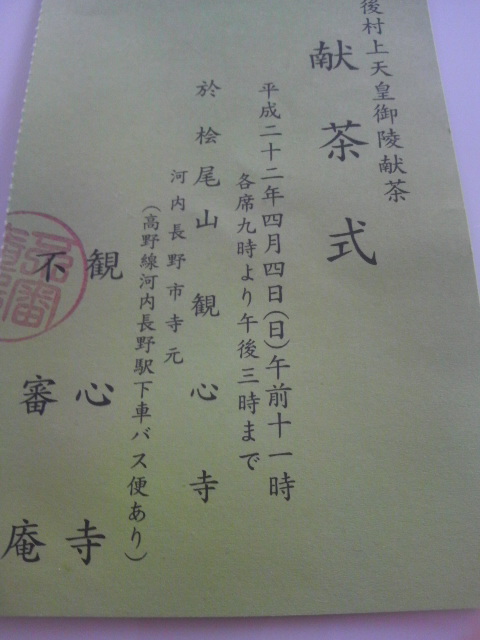 後村上天皇御陵献茶
献茶式
平成二十二年四月四日(日)午前十一時
各席九時より午後三時まで
於桧尾山観心寺
河内長野市寺元
(高野線河内長野駅下車バス便あり)
観心寺
不審庵